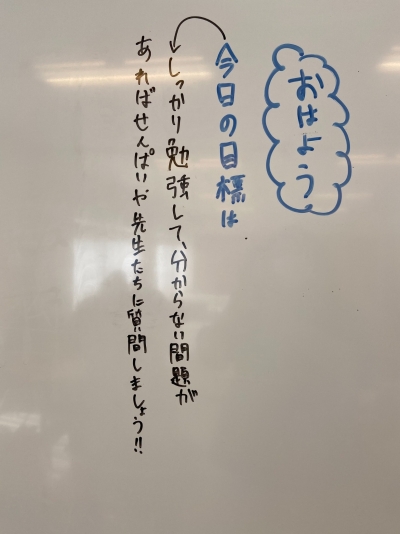 おはよう
今日の目標は
しっかり勉強して、分からない問題が
あればせんぱいや先生たちに質問しましょう!!